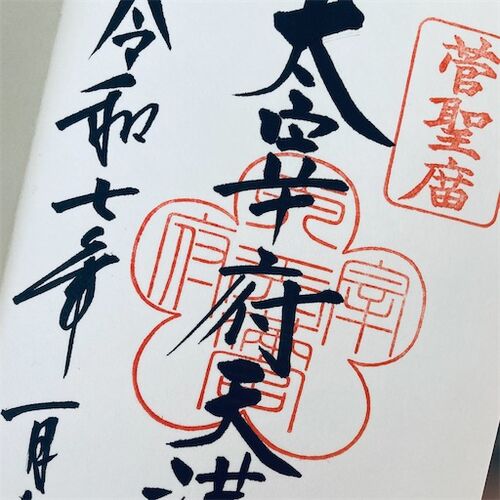 菅聖廟
太宰府天満
令和七年一月